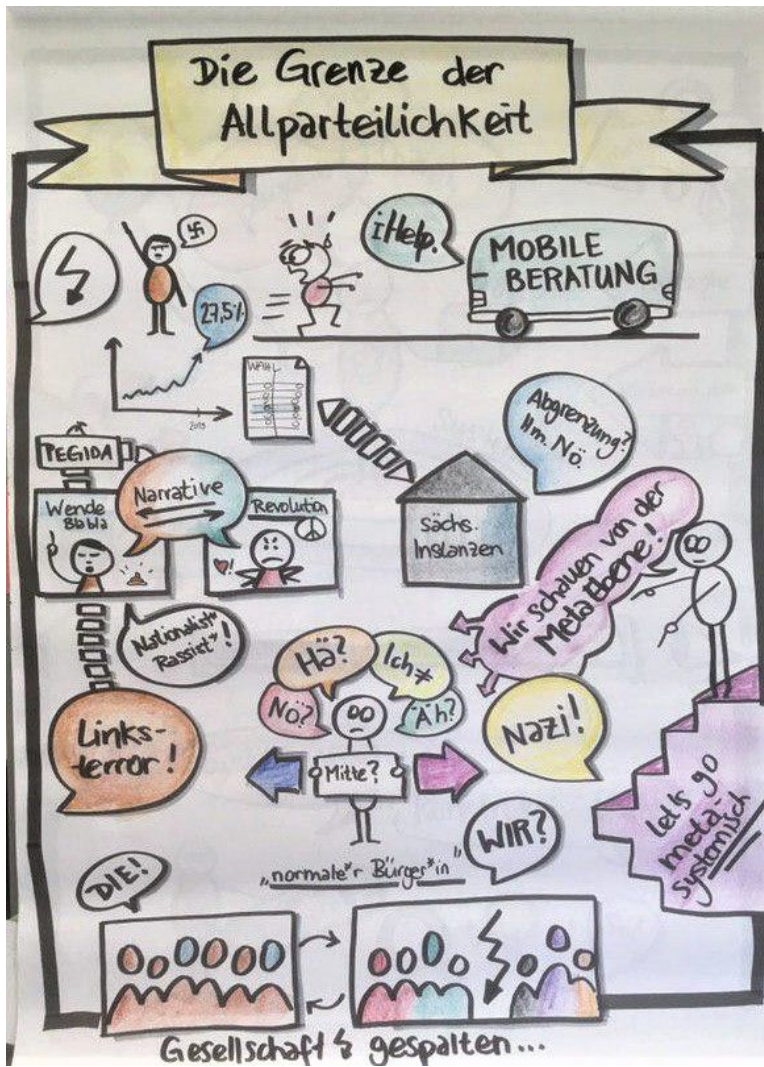 Die Grenze der
Allparteilichkeit
iHelp.
MOBILE
BERATUNG
27,5%
2019
WAHL
Abgrenzung?
Hm. Nö.
PEGIDA
Wende
Blabla
Narrative
Revolution
Sächs.
Instanzen
Wir schauen von der
Metaebene!
Nationalist*
Rassist*!
Hä?
Ich ≠
Nö?
Äh?
Links-
terror!
Mitte?
Nazi!
Let's go
meta-
systemisch
WIR?
„normale*r Bürger*in"
DIE!
Gesellschaft gespalten...